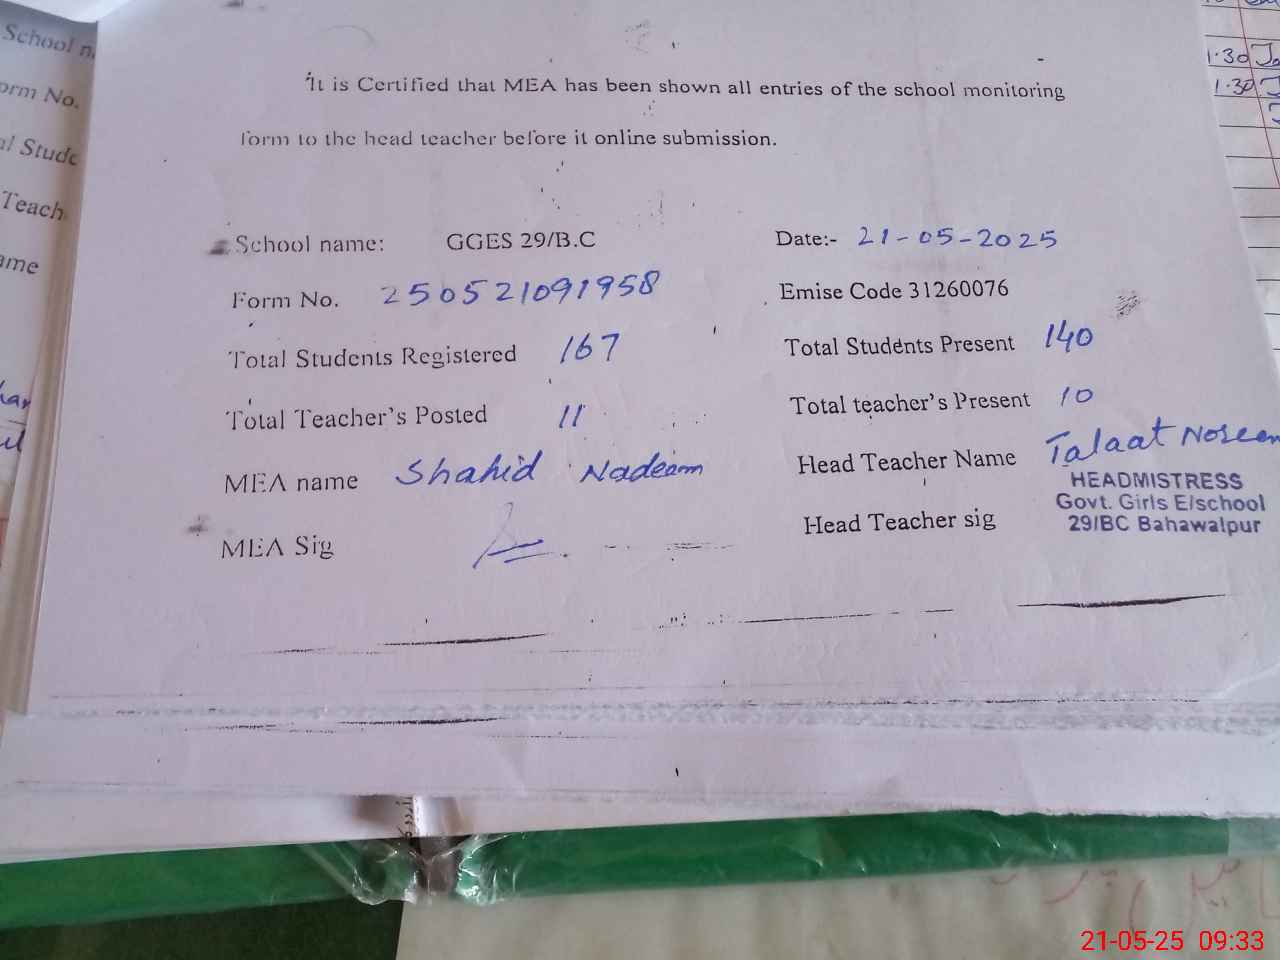 School n
orm No.
al Stude
Teach
ame
1.30
1.30
It is Certified that MEA has been shown all entries of the school monitoring
form to the head teacher before it online submission.
School name: GGES 29/B.C Date:- 21-05-2025
Form No. 250521091958 Emise Code 31260076
Total Students Registered 167 Total Students Present 140
Total Teacher's Posted 11 Total teacher's Present 10
MEA name Shahid Nadeem Head Teacher Name Talaat Noreen
HEADMISTRESS
Govt. Girls E/school
29/BC Bahawalpur
MEA Sig Head Teacher sig
21-05-25 09:33